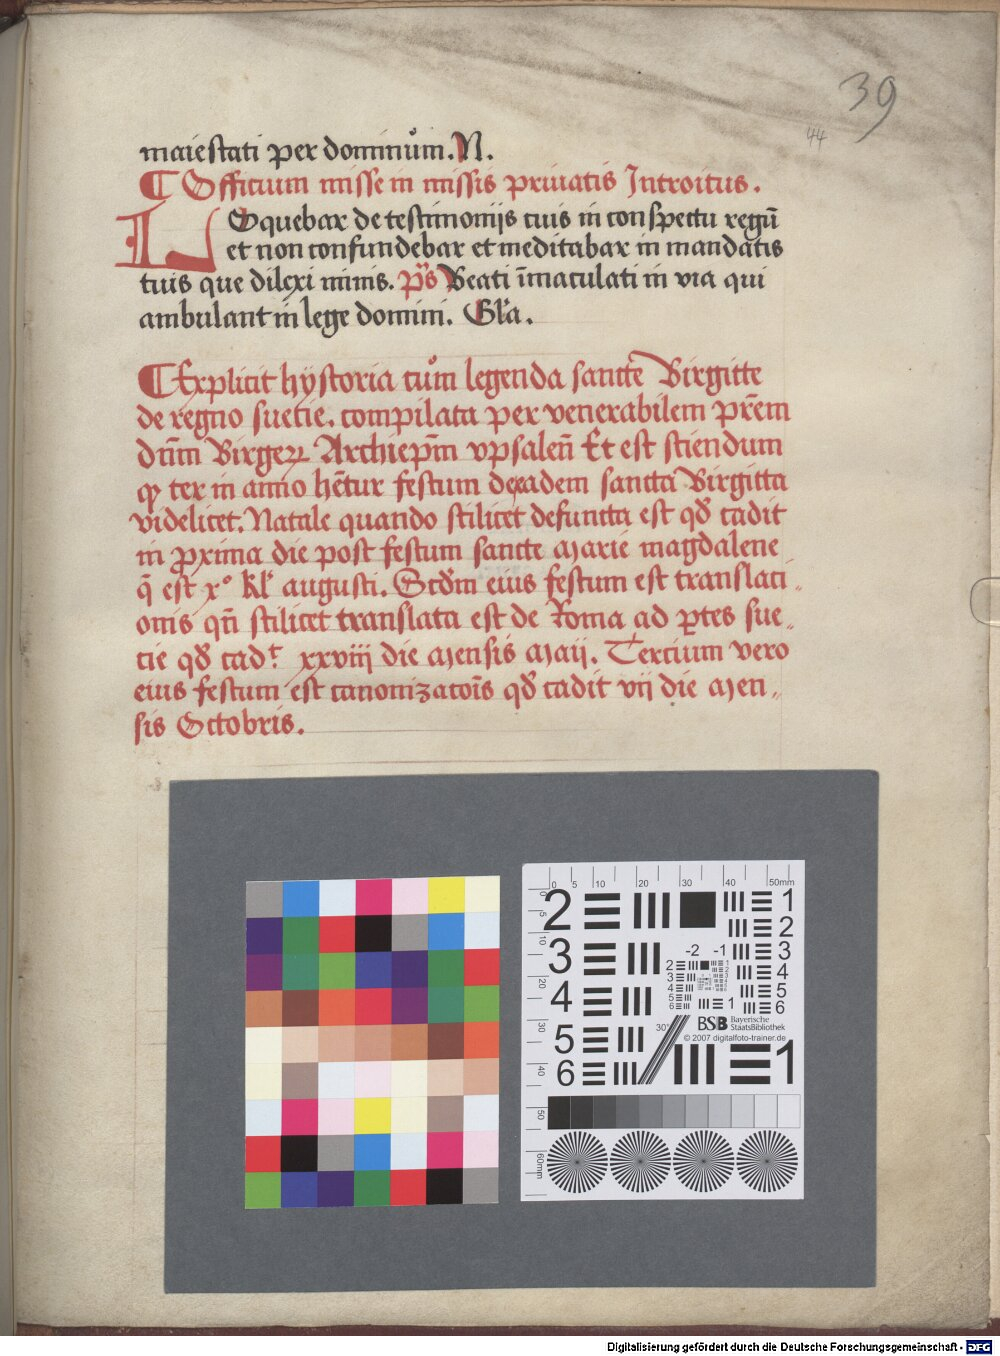 39
44
maiestati per dominum. N.
¶ Officium misse in missis priuatis Introitus.
LOquebar de testimonijs tuis in conspectu regū
et non confundebar et meditabar in mandatis
tuis que dilexi nimis. p̄s Beati īmaculati in via qui
ambulant in lege domini. Gl'a.
¶ Explicit hystoria cum legenda sancte Birgitte
de regno suetie. compilata per venerabilem prēm
dūm Birgerꝝ Archiepm̄ vpsaleñ Et est sciendum
ꝙ ter in anno hētur festum de eadem sancta Birgitta
videlicet. Natale quando scilicet defuncta est qd̄ cadit
in ꝓxima die post festum sancte Marie magdalene
q̄ est x° kl' augusti. Scd̄m eius festum est translaci
onis qn̄ scilicet translata est de Roma ad ꝑtes sue
cie qd̄ cad.t xxviii die Mensis Maij. Tercium vero
eius festum est canonizatoīs qd̄ cadit vij die Men
sis Octobris.
0 5 10 20 30 40 50mm
2 1
2
3 -2 -1 3
4 4
5
6
5 30°
BSB Bayerische
StaatsBibliothek
© 2007 digitalfoto-trainer.de
6 1
0 5 10 20 30 40 50 60mm
Digitalisierung gefördert durch die Deutsche Forschungsgemeinschaft - DFG